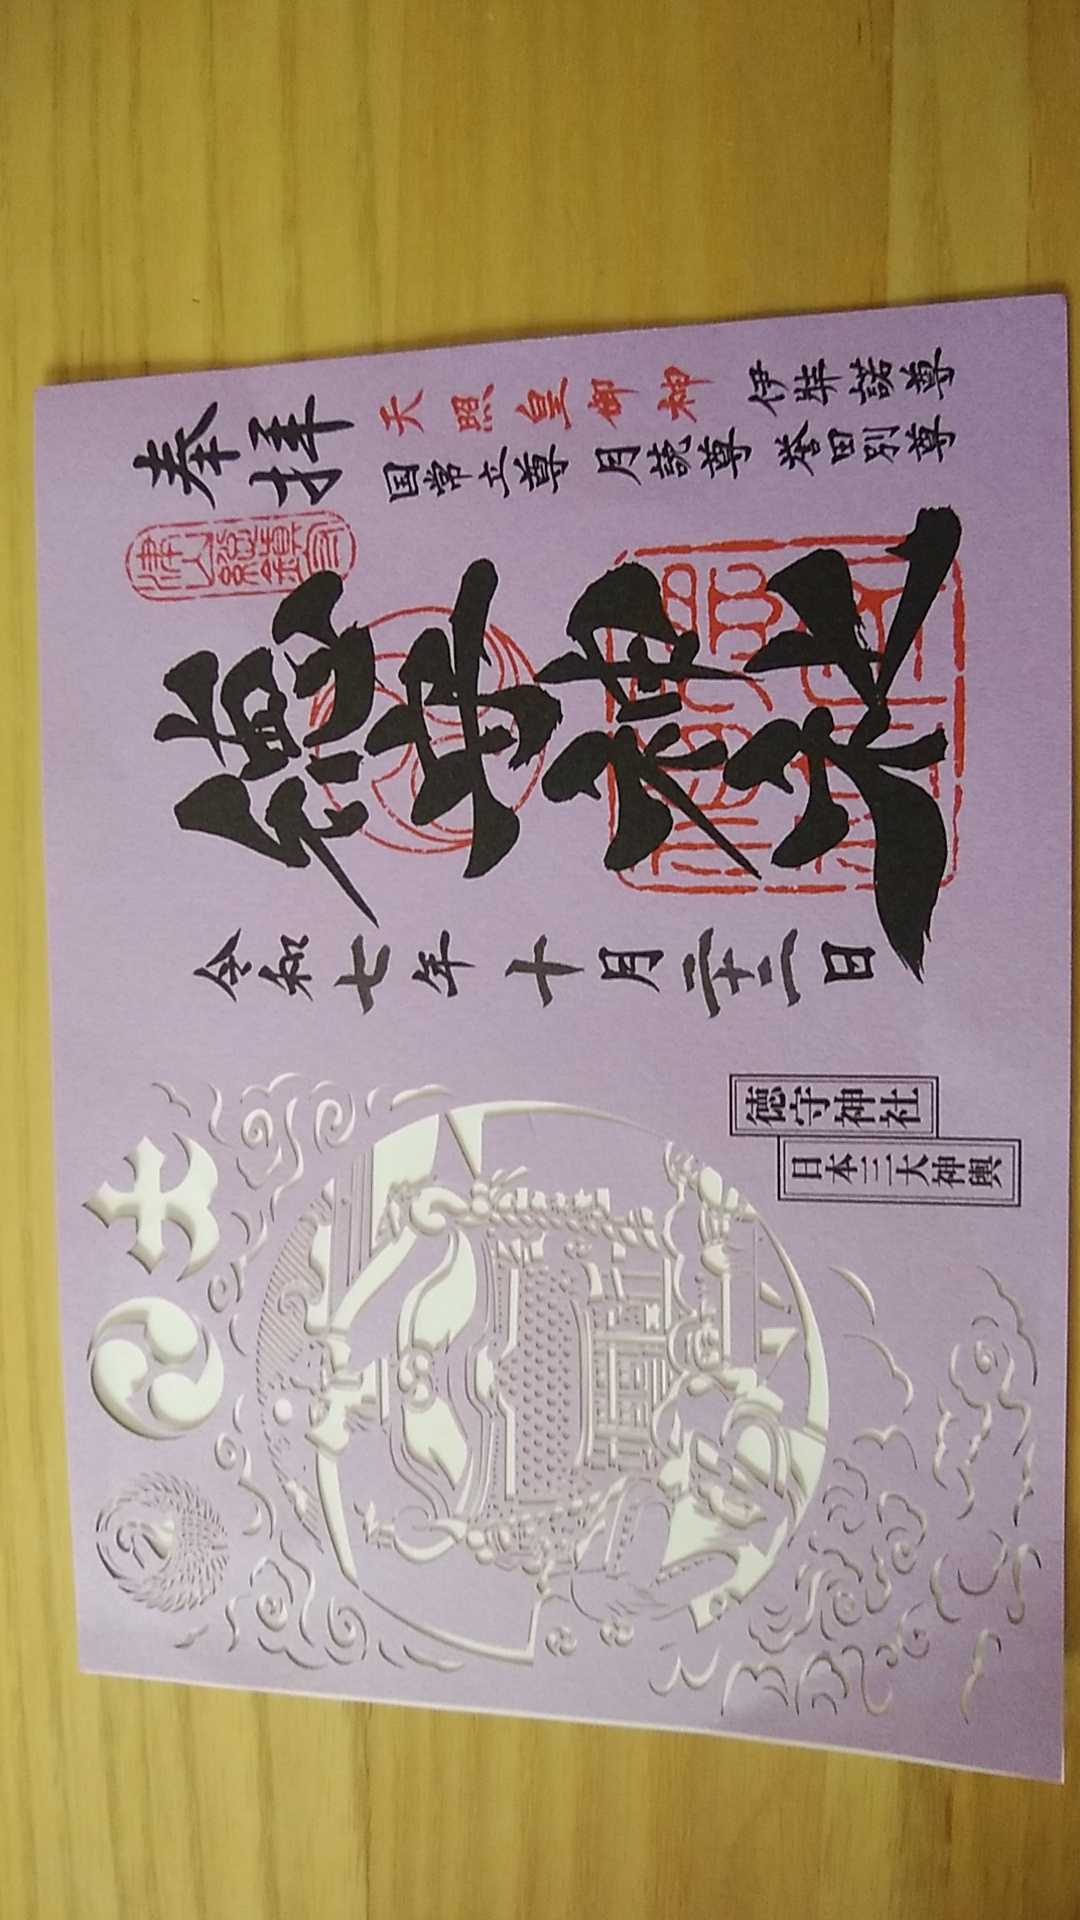 奉拝
天照皇御神 伊弉諾尊
国常立尊 月読尊 誉田別尊
津山総鎮守
徳守神社
令和七年十月二十二日
徳守神社
日本三大神輿